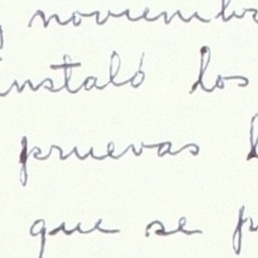 noviembre
instaló los
pruevas
que se